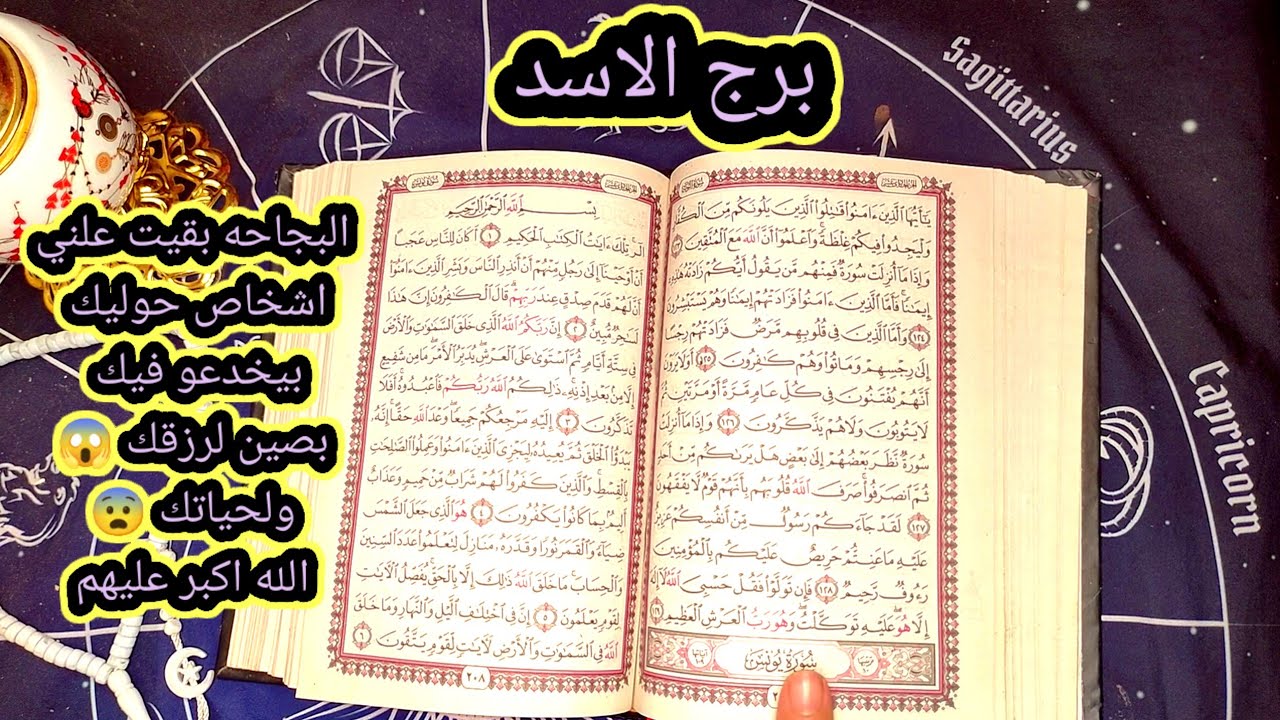 برج الاسد
البجاحه بقيت علني
اشخاص حوليك
بيخدعو فيك
بصين لرزقك 😱
ولحياتك 😨
الله اكبر عليهم
Sagittarius
Capricorn
يَٰٓأَيُّهَا ٱلَّذِينَ ءَامَنُوا۟ قَٰتِلُوا۟ ٱلَّذِينَ يَلُونَكُم مِّنَ ٱلْكُفَّا
وَلْيَجِدُوا۟ فِيكُمْ غِلْظَةً وَٱعْلَمُوٓا۟ أَنَّ ٱللَّهَ مَعَ ٱلْمُتَّقِينَ
وَإِذَا مَآ أُنزِلَتْ سُورَةٌ فَمِنْهُم مَّن يَقُولُ أَيُّكُمْ زَادَتْهُ هَٰذِهِ
إِيمَٰنًا فَأَمَّا ٱلَّذِينَ ءَامَنُوا۟ فَزَادَتْهُمْ إِيمَٰنًا وَهُمْ يَسْتَبْشِرُو
١٢٤ وَأَمَّا ٱلَّذِينَ فِى قُلُوبِهِم مَّرَضٌ فَزَادَتْهُمْ رِجْسًا
إِلَىٰ رِجْسِهِمْ وَمَاتُوا۟ وَهُمْ كَٰفِرُونَ ١٢٥ أَوَلَا يَرَوْنَ
أَنَّهُمْ يُفْتَنُونَ فِى كُلِّ عَامٍ مَّرَّةً أَوْ مَرَّتَيْنِ
لَا يَتُوبُونَ وَلَا هُمْ يَذَّكَّرُونَ ١٢٦ وَإِذَا مَآ أُنزِلَتْ
سُورَةٌ نَّظَرَ بَعْضُهُمْ إِلَىٰ بَعْضٍ هَلْ يَرَىٰكُم مِّنْ أَحَدٍ
ثُمَّ ٱنصَرَفُوا۟ صَرَفَ ٱللَّهُ قُلُوبَهُم بِأَنَّهُمْ قَوْمٌ لَّا يَفْقَهُونَ
١٢٧ لَقَدْ جَآءَكُمْ رَسُولٌ مِّنْ أَنفُسِكُمْ عَزِيزٌ
عَلَيْهِ مَا عَنِتُّمْ حَرِيصٌ عَلَيْكُم بِٱلْمُؤْمِنِينَ
رَءُوفٌ رَّحِيمٌ ١٢٨ فَإِن تَوَلَّوْا۟ فَقُلْ حَسْبِىَ ٱللَّهُ لَآ إِلَٰهَ
إِلَّا هُوَ عَلَيْهِ تَوَكَّلْتُ وَهُوَ رَبُّ ٱلْعَرْشِ ٱلْعَظِيمِ ١٢٩
سُورَةُ يُونُسَ
بِسْمِ ٱللَّهِ ٱلرَّحْمَٰنِ ٱلرَّحِيمِ
الٓر تِلْكَ ءَايَٰتُ ٱلْكِتَٰبِ ٱلْحَكِيمِ ١ أَكَانَ لِلنَّاسِ عَجَبًا
أَنْ أَوْحَيْنَآ إِلَىٰ رَجُلٍ مِّنْهُمْ أَنْ أَنذِرِ ٱلنَّاسَ وَبَشِّرِ ٱلَّذِينَ ءَامَنُوٓا۟
أَنَّ لَهُمْ قَدَمَ صِدْقٍ عِندَ رَبِّهِمْ قَالَ ٱلْكَٰفِرُونَ إِنَّ هَٰذَا
لَسَٰحِرٌ مُّبِينٌ ٢ إِنَّ رَبَّكُمُ ٱللَّهُ ٱلَّذِى خَلَقَ ٱلسَّمَٰوَٰتِ وَٱلْأَرْضَ
فِى سِتَّةِ أَيَّامٍ ثُمَّ ٱسْتَوَىٰ عَلَى ٱلْعَرْشِ يُدَبِّرُ ٱلْأَمْرَ مَا مِن شَفِيعٍ
إِلَّا مِنۢ بَعْدِ إِذْنِهِۦ ذَٰلِكُمُ ٱللَّهُ رَبُّكُمْ فَٱعْبُدُوهُ أَفَلَا
تَذَكَّرُونَ ٣ إِلَيْهِ مَرْجِعُكُمْ جَمِيعًا وَعْدَ ٱللَّهِ حَقًّا إِنَّهُۥ
يَبْدَؤُا۟ ٱلْخَلْقَ ثُمَّ يُعِيدُهُۥ لِيَجْزِىَ ٱلَّذِينَ ءَامَنُوا۟ وَعَمِلُوا۟ ٱلصَّٰلِحَٰتِ
بِٱلْقِسْطِ وَٱلَّذِينَ كَفَرُوا۟ لَهُمْ شَرَابٌ مِّنْ حَمِيمٍ وَعَذَابٌ
أَلِيمٌۢ بِمَا كَانُوا۟ يَكْفُرُونَ ٤ هُوَ ٱلَّذِى جَعَلَ ٱلشَّمْسَ
ضِيَآءً وَٱلْقَمَرَ نُورًا وَقَدَّرَهُۥ مَنَازِلَ لِتَعْلَمُوا۟ عَدَدَ ٱلسِّنِينَ
وَٱلْحِسَابَ مَا خَلَقَ ٱللَّهُ ذَٰلِكَ إِلَّا بِٱلْحَقِّ يُفَصِّلُ ٱلْءَايَٰتِ
لِقَوْمٍ يَعْلَمُونَ ٥ إِنَّ فِى ٱخْتِلَٰفِ ٱلَّيْلِ وَٱلنَّهَارِ وَمَا خَلَقَ
ٱللَّهُ فِى ٱلسَّمَٰوَٰتِ وَٱلْأَرْضِ لَءَايَٰتٍ لِّقَوْمٍ يَتَّقُونَ ٦
٢٠٨